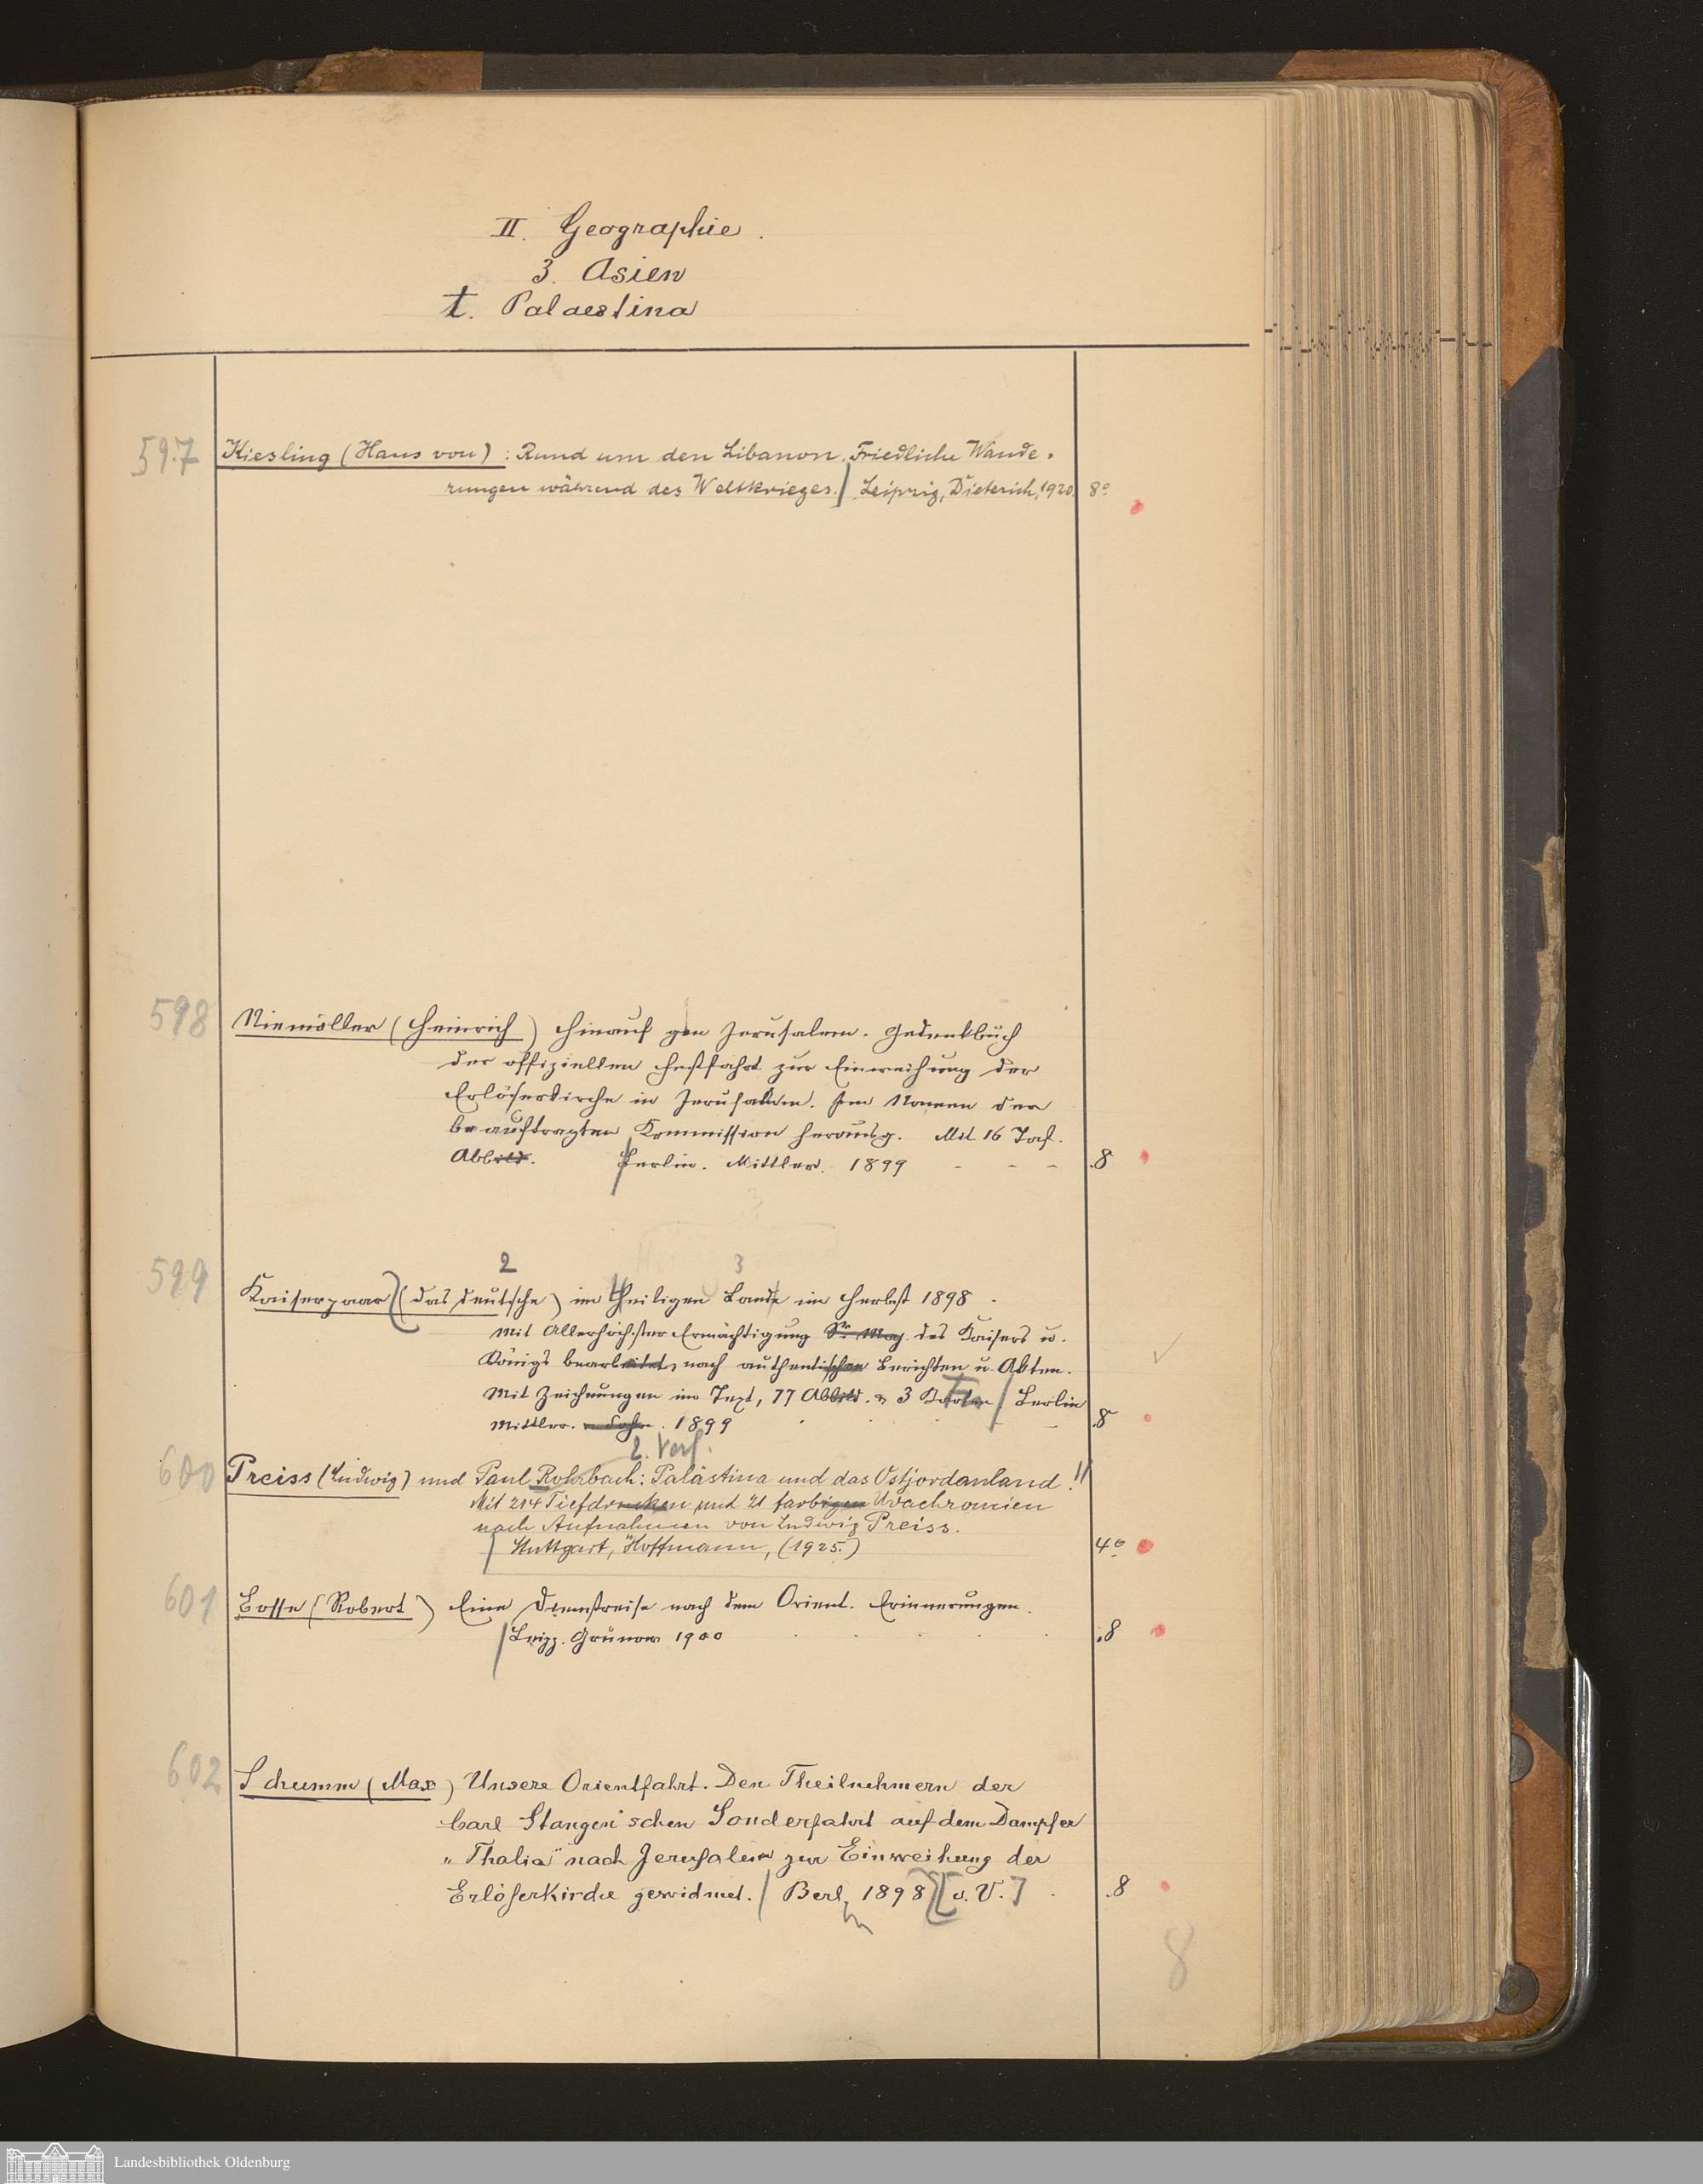 II. Geographie.
3. Asien
t. Palaestina
597 Kiesling (Hans von) : Rund um den Libanon. Friedliche Wande-
rungen während des Weltkrieges. Leipzig, Dieterich, 1920. 8°
598 Niemöller (Heinrich) Hinauf gen Jerusalem. Gedenkbuch
der offiziellen Festfahrt zur Einweihung der
Erlöserkirche in Jerusalem. Im Namen der
beauftragten Kommission herausg. Mit 16 Taf.
Abbild. Berlin. Mittler. 1899 - - - 8
2 3
599 Kaiserpaar (das deutsche) im heiligen Lande im Herbst 1898.
Mit Allerhöchster Ermächtigung Sr. Maj. des Kaisers u.
Königs bearbeitet, nach authentischen Berichten u. Akten.
Mit Zeichnungen im Text, 77 Abbild. & 3 Karten / Berlin
Mittler. u Sohn. 1899 8
2. Verf.
600 Preiss (Ludwig) und Paul Rohrbach: Palästina und das Ostjordanland!!
Mit 214 Tiefdrucken und 21 farbigen Uvachromien
nach Aufnahmen von Ludwig Preiss.
Stuttgart, Hoffmann, (1925.) 4°
601 Bosse (Robert) Eine Dienstreise nach dem Orient. Erinnerungen.
Leipz. Grunow 1900 8
602 Schumm (Max) Unsere Orientfahrt. Den Theilnehmern der
Carl Stangen'schen Sonderfahrt auf dem Dampfer
„Thalia" nach Jerusalem zur Einweihung der
Erlöserkirche gewidmet. / Berl. 1898 [v. V.] 8
8
Landesbibliothek Oldenburg